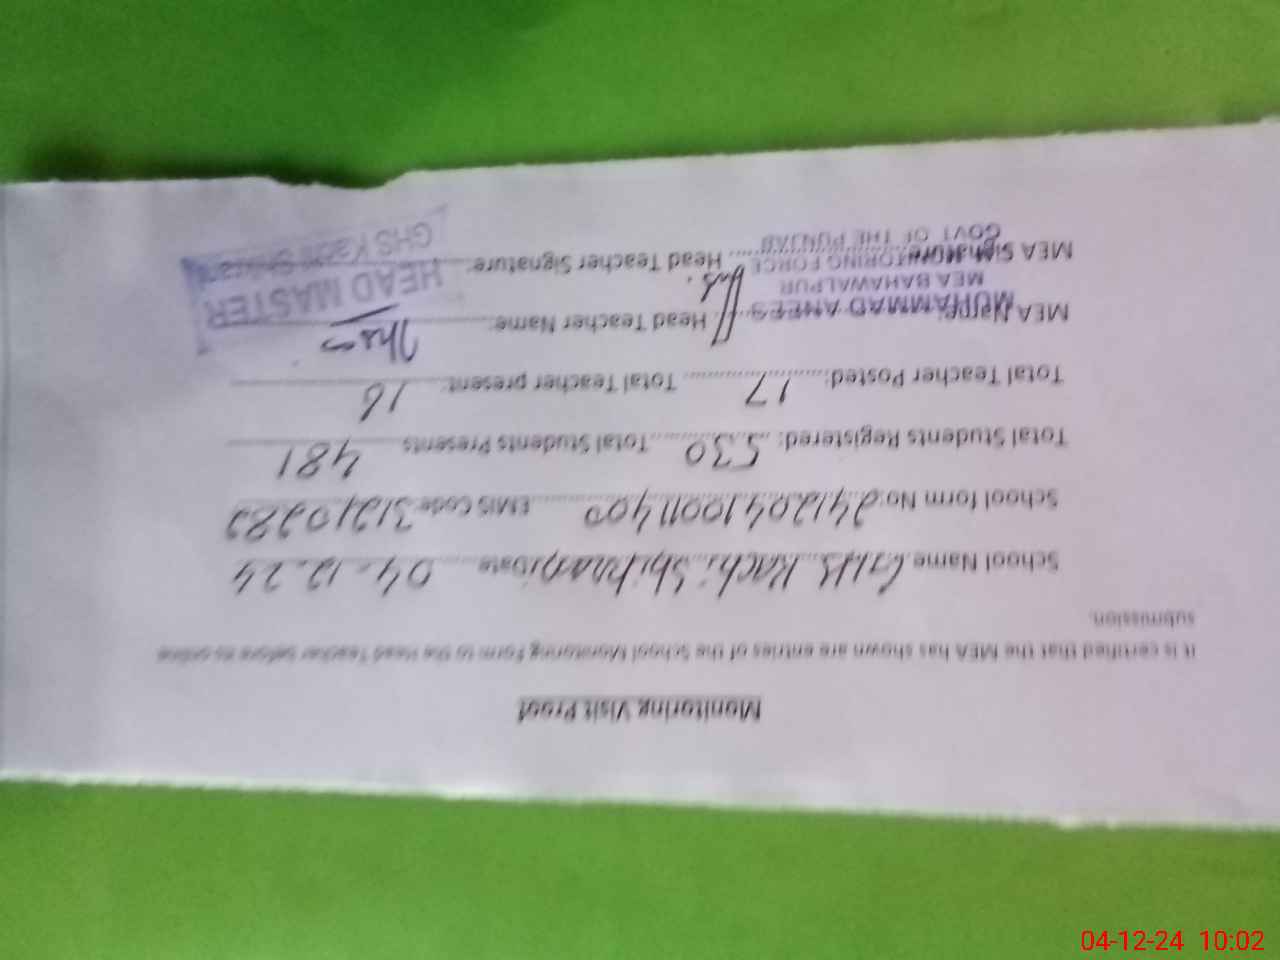 Monitoring Visit Proof
It is certified that the MEA has shown are entries of the School Monitoring Form to the Head Teacher before its online
submission.
School Name GHS Kachi Shikrani Date 04-12-24
School form No: 24120410011400 EMIS Code 31210282
Total Students Registered: 530 Total Students Presents 481
Total Teacher Posted: 17 Total Teacher present: 16
MEA Name: MUHAMMAD ANEES Head Teacher Name:
MEA BAHAWALPUR
MONITORING FORCE
GOVT OF THE PUNJAB
MEA Signature: Head Teacher Signature:
HEAD MASTER
GHS Kachi Shikrani
04-12-24 10:02